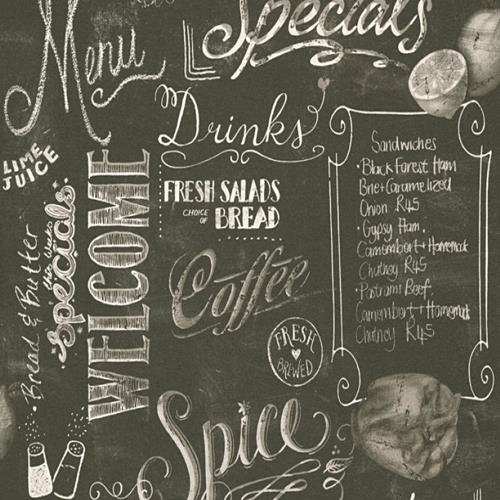 Menu
Specials
Drinks
LIME
JUICE
FRESH SALADS
CHOICE
OF
BREAD
WELCOME
this week's
Specials
Bread & Butter
Coffee
FRESH
BREWED
Spice
Sandwiches
• Black Forest Ham
Brie + Caramelized
Onion R45
Gypsy Ham,
Camembert + Homemade
Chutney R45
• Pastrami Beef,
Camembert + Homemade
Chutney R45